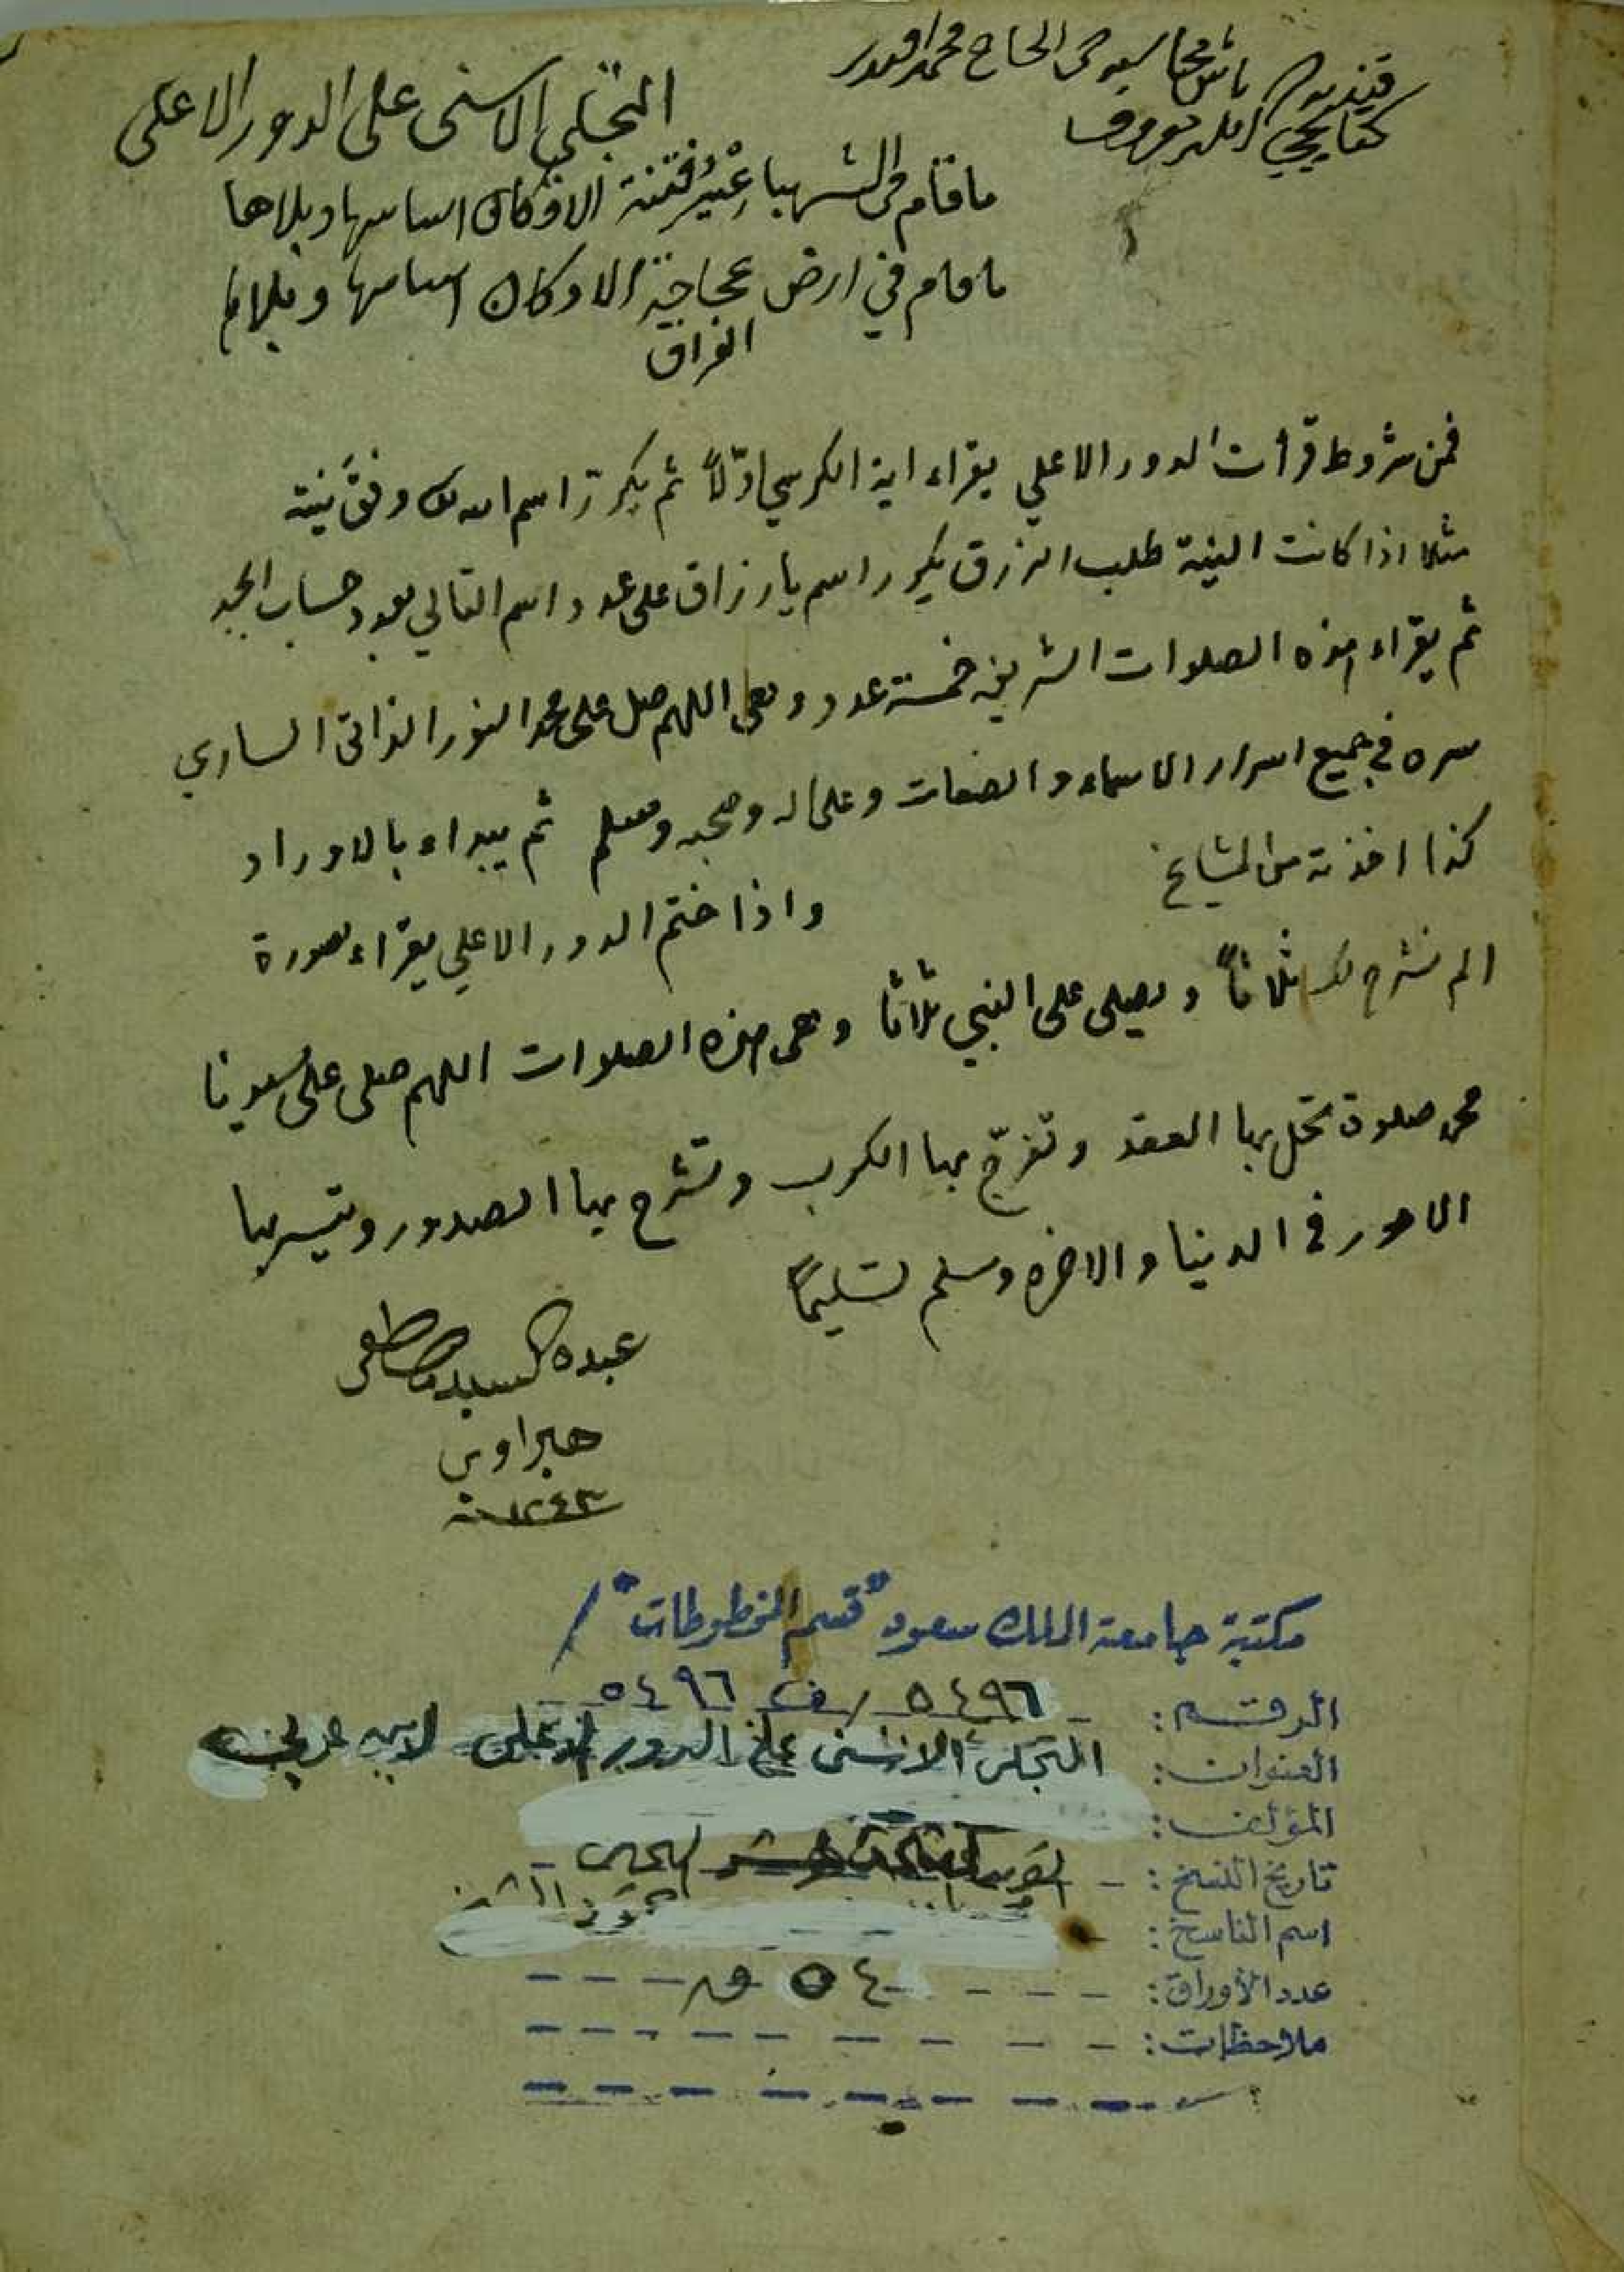 باش محاسبه جى الحاج محمد افندى
التجلي الاسنى على الدور الاعلى
ما قام في الشهباء عثير فتنة الا وكان اساسها وبلاها
ما قام في ارض عجاجة الا وكان اساسها وبلاها
العراق
فمن شروط قرأت الدور الاعلي يقراء اية الكرسي اوّلاً ثم يكرر اسم الله وفق نيته
مثلا اذا كانت النية طلب الرزق يكرر اسم يا رزاق على عدد اسم التالي بعدد حساب
ثم يقراء هذه الصلوات الشريفه خمسة عدد وهى اللهم صل على محمد النور الذاتى الساري
سره في جميع اسرار الاسماء والصفات وعلى اله وصحبه وسلم ثم يبداء بالاوراد
كذا اخذته من المشايخ
واذا ختم الدور الاعلي يقراء سورة
الم نشرح لك ثلاثاً ويصلى على النبي ثلاثا وهى هذه الصلوات اللهم صلى على سيدنا
محمد صلوة تحل بها العقد وتفرّج بها الكرب وتشرح بها الصدور وتيسر بها
الامور في الدنيا والاخره وسلم تسليماً
عبده السيد مصطفى
هبراوى
١٢٤٣ سنة
مكتبة جامعة الملك سعود "قسم المخطوطات"
الرقم: ٥٤٩٦ / ف ٥٤٩٦
العنوان: التجلى الاسنى على الدور الاعلى لابن عربي
المؤلف:
تاريخ النسخ:
اسم الناسخ:
عدد الأوراق: ٥٤ ق
ملاحظات: